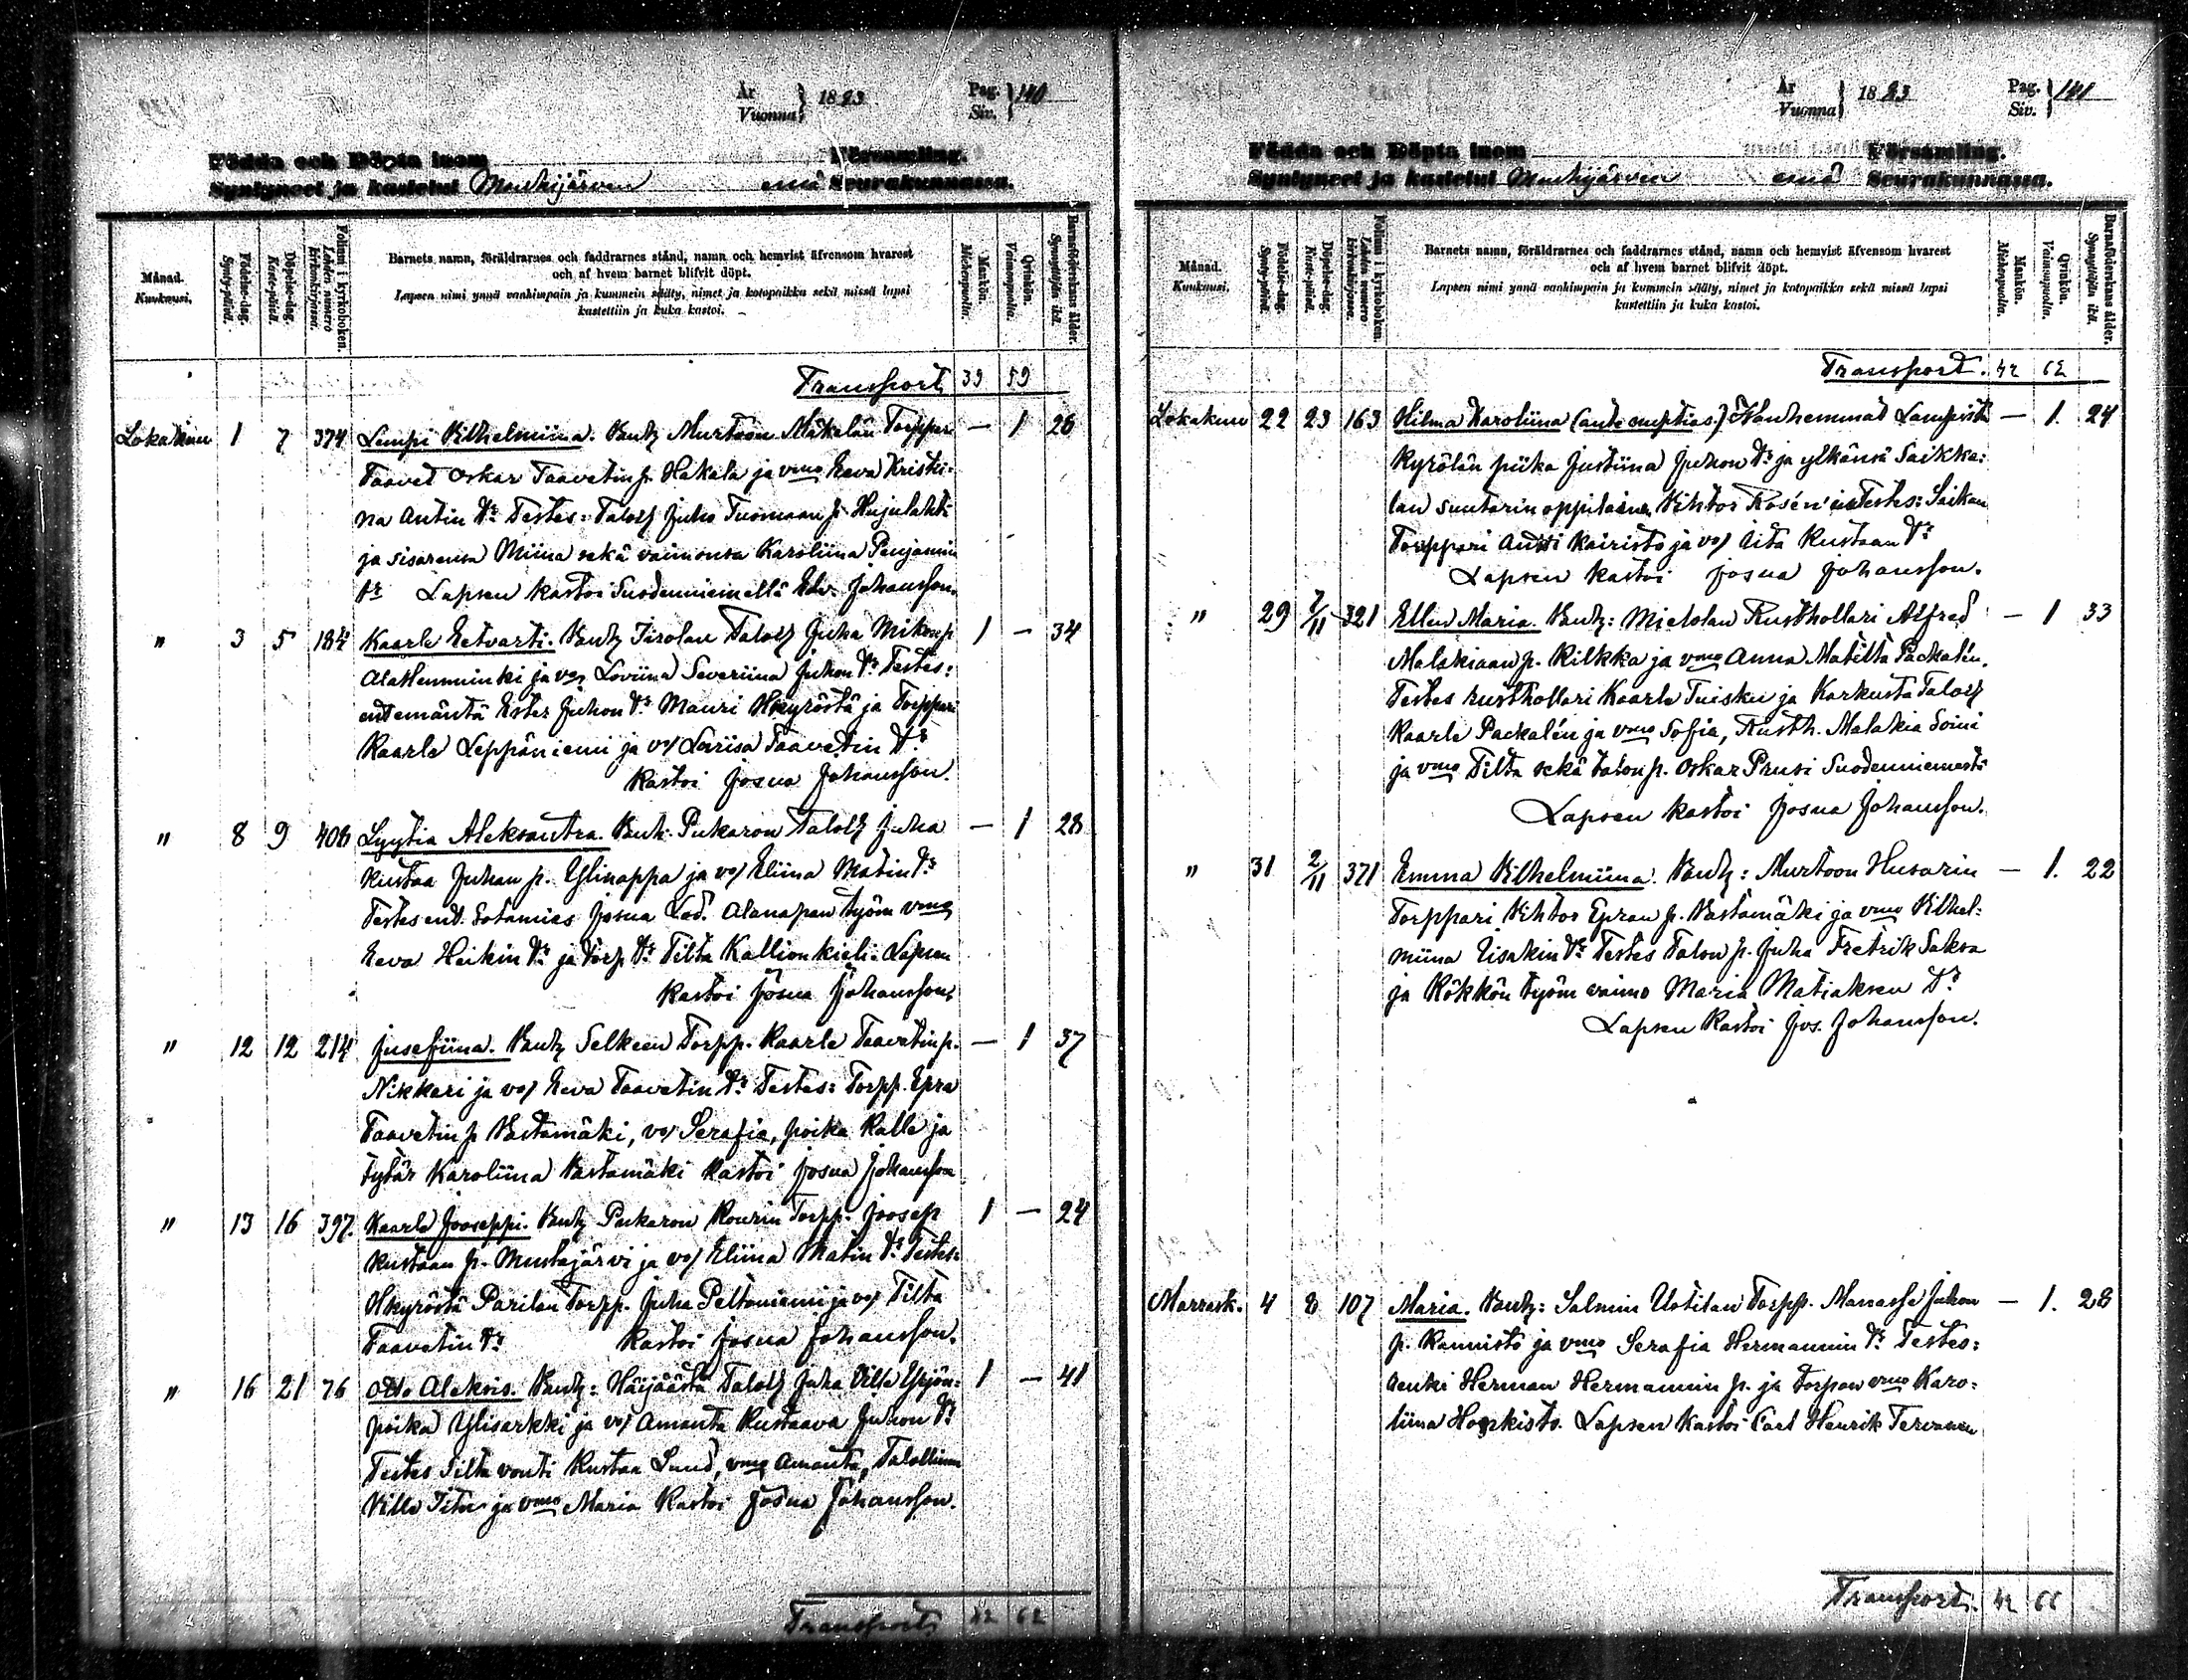 År
Vuonna } 1893
Pag.
Siv. } 140
Födda och Döpta inom Församling.
Syntyneet ja kastetut Mouhijärven emä Seurakunnassa.
Månad.
Kuukausi.
Födelse-dag.
Synty-päivä.
Döpelse-dag.
Kaste-päivä.
Folium i kyrkoboken.
Lehden numero kirkonkirjassa.
Barnets namn, föräldrarnes och faddrarnes stånd, namn och hemvist äfvensom hvarest
och af hvem barnet blifvit döpt.
Lapsen nimi ynnä vanhimpain ja kummein sääty, nimet ja kotopaikka sekä missä lapsi
kastettiin ja kuka kastoi.
Mankön.
Miehenpuolia.
Qvinkön.
Vaimonpuolia.
Barnaföderskans ålder.
Synnyttäjän ikä.
Transport 39 59
Lokakuu 1 7 374 Lempi Vilhelmiina. Vanh. Murtoon Mäkelän Torppari — 1 26
Taavet Oskar Taavetinp. Hakala ja vmo Eeva Kristi-
na Antin tr Testes: Talolz Juho Tuomaan p. Hujulahti
ja sisarensa Miina sekä vaimonsa Karoliina Penjamin
tr Lapsen kastoi Suodenniemellä Edv. Johansson.
" 3 5 184 Kaarle Eetvarti. Vanh. Tirolan Talolz Juha Mikonp. 1 — 34
AlaHemminki ja vo Loviina Severiina Juhon tr Testes:
entemäntä Ester Juhon tr Mauri Hkyröstä ja Torppari
Kaarle Leppäniemi ja vo Loviisa Taavetin tr
Kastoi Josua Johansson.
" 8 9 406 Lyytia Aleksantra. Vanh. Pukaron Talolz Juha — 1 28
Kustaa Juhan p. Ylinappa ja vo Eliina Matin tr
Testes ent. Sotamies Josua Led. Alanapan työm vmo
Eeva Heikin tr ja Torp tr Tilta Kallionkieli. Lapsen
kastoi Josua Johansson,
" 12 12 214 Jusefiina. Vanh. Selkeen Torpp. Kaarle Taavetinp. — 1 37
Nikkari ja vo Eeva Taavetin tr Testes: Torpp. Epra
Taavetinp Vastamäki, vo Serafia, poika Kalle ja
tytär Karoliina Vastamäki kastoi Josua Johansson
" 13 16 397. Kaarle Jooseppi. Vanh. Pukaron Rourin Torpp. Joosep 1 — 24
Kustaan p. Mustajärvi ja vo Eliina Matin tr Testes:
Hkyröstä Parilan Torpp. Juha Peltoniemi ja vo Tilta
Taavetin tr Kastoi Josua Johansson.
" 16 21 76 Otto Aleksis. Vanh: Häijäästä Talolz Juha Ville Yrjön- 1 — 41
poika Ylisarkki ja vo Amanta Kustaava Juhon tr
Testes Silta vouti Kustaa Lund, vmo Amanta, Talollinen
Ville Titu ja vmo Maria Kastoi Josua Johansson.
Transport 42 62
År
Vuonna } 1893
Pag.
Siv. } 141
Födda och Döpta inom Församling.
Syntyneet ja kastetut Mouhijärven emä Seurakunnassa.
Månad.
Kuukausi.
Födelse-dag.
Synty-päivä.
Döpelse-dag.
Kaste-päivä.
Folium i kyrkoboken.
Lehden numero kirkonkirjassa.
Barnets namn, föräldrarnes och faddrarnes stånd, namn och hemvist äfvensom hvarest
och af hvem barnet blifvit döpt.
Lapsen nimi ynnä vanhimpain ja kummein sääty, nimet ja kotopaikka sekä missä lapsi
kastettiin ja kuka kastoi.
Mankön.
Miehenpuolia.
Qvinkön.
Vaimonpuolia.
Barnaföderskans ålder.
Synnyttäjän ikä.
Transport. 42 62
Lokakuu 22 23 163 Hilma Karoliina (ante nuptias.) Vanhemmat Lampista — 1. 24
Kyrölän piika Justiina Juhon tr ja ylkänsä Saikka-
lan suutarin oppilainen Vihtor Rosén Testes: Saikan
Torppari Antti Kairisto ja vo Aita Kustaan tr
Lapsen kastoi Josua Johansson.
" 29 7/11 321 Ellen Maria. Vanh: Mietolan Rusthollari Alfred — 1 33
Malakiaan p. Kilkka ja vmo Anna Matilta Packalén.
Testes rusthollari Kaarle Tuisku ja Karkusta Talolz
Kaarle Packalén ja vmo Sofia, Rusth. Malakia Soini
ja vmo Tilta sekä talonp. Oskar Prusi Suodenniemestä
Lapsen kastoi Josua Johansson.
" 31 2/11 371 Emma Vilhelmiina. Vanh: Murtoon Husarin — 1. 22
Torppari Vihtor Epran p. Vastamäki ja vmo Vilhel-
miina Eisakin tr Testes Talon p. Juha Fretrik Saksa
ja Kökkön työm vaimo Maria Matiaksen tr
Lapsen Kastoi Jos. Johansson.
Marrask. 4 8 107 Maria. Vanh: Salmin Uotilan Torpp. Manasse Juhon — 1. 28
p. Kannisto ja vmo Serafia Hermannin tr Testes:
Renki Herman Hermannin p. ja Torpan vmo Karo-
liina Honkisto. Lapsen Kastoi Carl Henrik Tervanen
Transport. 42 66